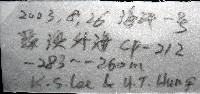 2003, 8, 26 海研一号
蘇澳外海 CP-212
-283~-260m
K.S. Lee & Y.T. Hung